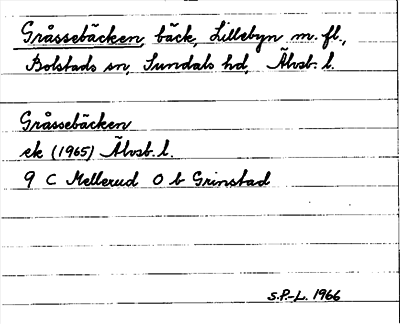 Gråssebäcken, bäck, Lillebyn m. fl.,
Bolstads sn, Sundals hd, Älvsb. l.
Gråssebäcken
ek (1965) Älvsb. l.
9 C Mellerud O b Grinstad
S.P.-L. 1966